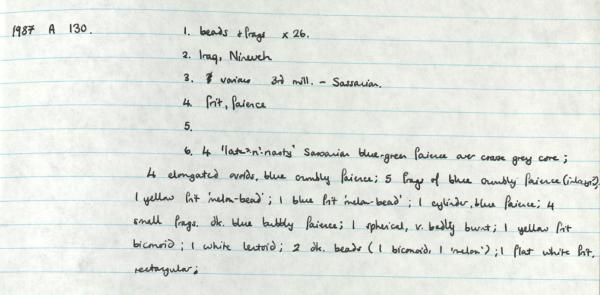 1987 A 130. 1. beads + frags x 26.
2. Iraq, Nineveh
3. various 3rd mill. - Sassanian.
4. frit, faience
5.
6. 4 'late-n'-nasty' Sassanian blue-green faience over coarse grey core;
4 elongated ovoids, blue crumbly faience; 5 frags of blue crumbly faience (inlays?);
1 yellow frit 'melon-bead'; 1 blue frit 'melon-bead'; 1 cylinder, blue faience; 4
small frags. dk. blue bubbly faience; 1 spherical, v. badly burnt; 1 yellow frit
biconoid; 1 white lentoid; 2 dk. beads (1 biconoid, 1 'melon'); 1 flat white frit,
rectangular;